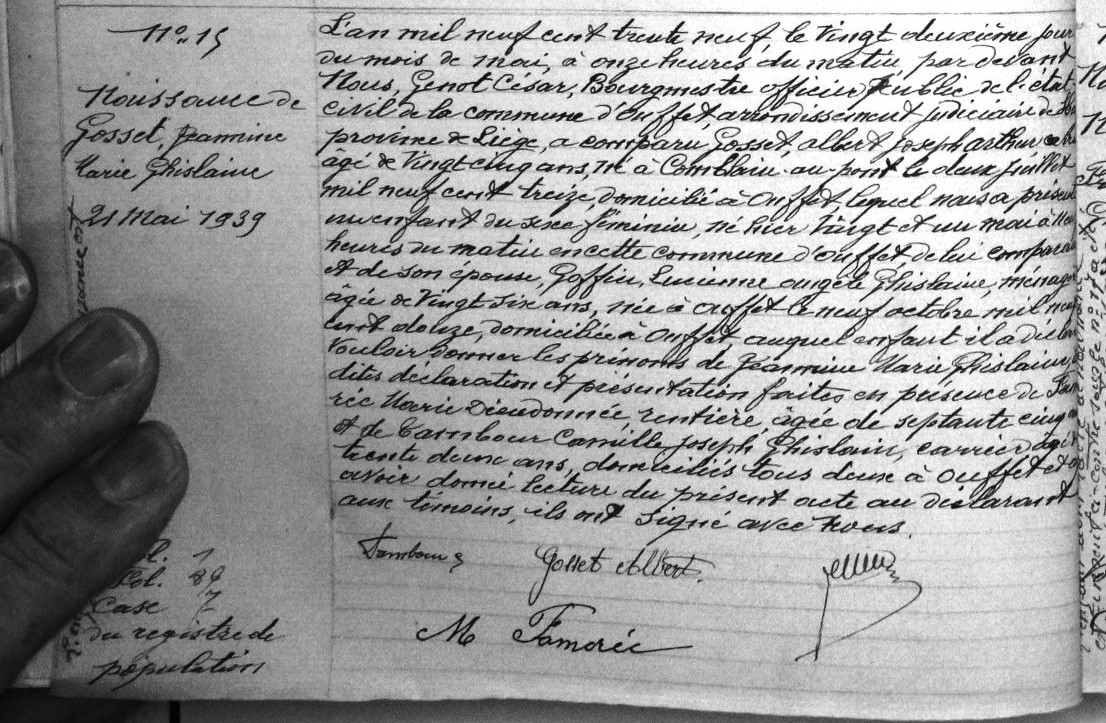 N° 15
Naissance de
Gosset, Jeannine
Marie Ghislaine
21 Mai 1939
L'an mil neuf cent trente neuf, le vingt deuxième jour
du mois de mai, à onze heures du matin, par devant
Nous, Genot César, Bourgmestre officier Public de l'état
civil de la commune d'Ouffet, arrondissement judiciaire de
province de Liège, a comparu Gosset, Albert Joseph Arthur
âgé de vingt cinq ans, né à Comblain-au-pont le deux juillet
mil neuf cent treize, domicilié à Ouffet, lequel nous a présenté
un enfant du sexe féminin, né hier vingt et un mai à
heures du matin en cette commune d'Ouffet de lui comparant
et de son épouse, Goffin, Lucienne Angèle Ghislaine, ménag
âgée de vingt six ans, née à Ouffet le neuf octobre mil neuf
cent douze, domiciliée à Ouffet auquel enfant il a déclaré
vouloir donner les prénoms de Jeannine Marie Ghislaine,
dites déclaration et présentation faites en présence de Famo
rée Marie Dieudonnée, rentière, âgée de septante cinq
et de Tambour Camille Joseph Ghislain, carrier
trente deux ans, domiciliés tous deux à Ouffet et
avoir donné lecture du présent acte au déclarant
aux témoins, ils ont signé avec nous.
Tambour
Gosset Albert.
M Famorée
Fol. 89
Case 7
du registre de
population